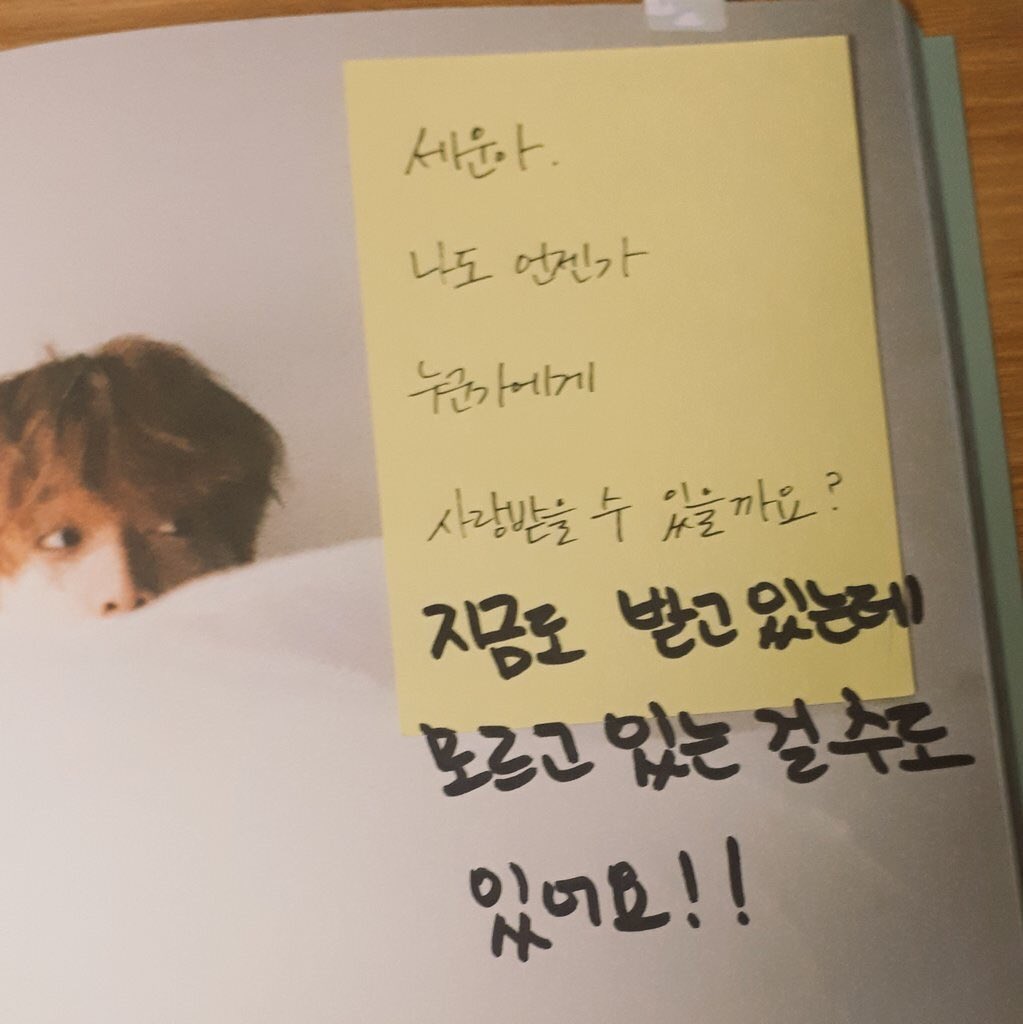 세운아.
나도 언젠가
누군가에게
사랑받을 수 있을까요?
지금도 받고 있는데
모르고 있는 걸 수도
있어요!!